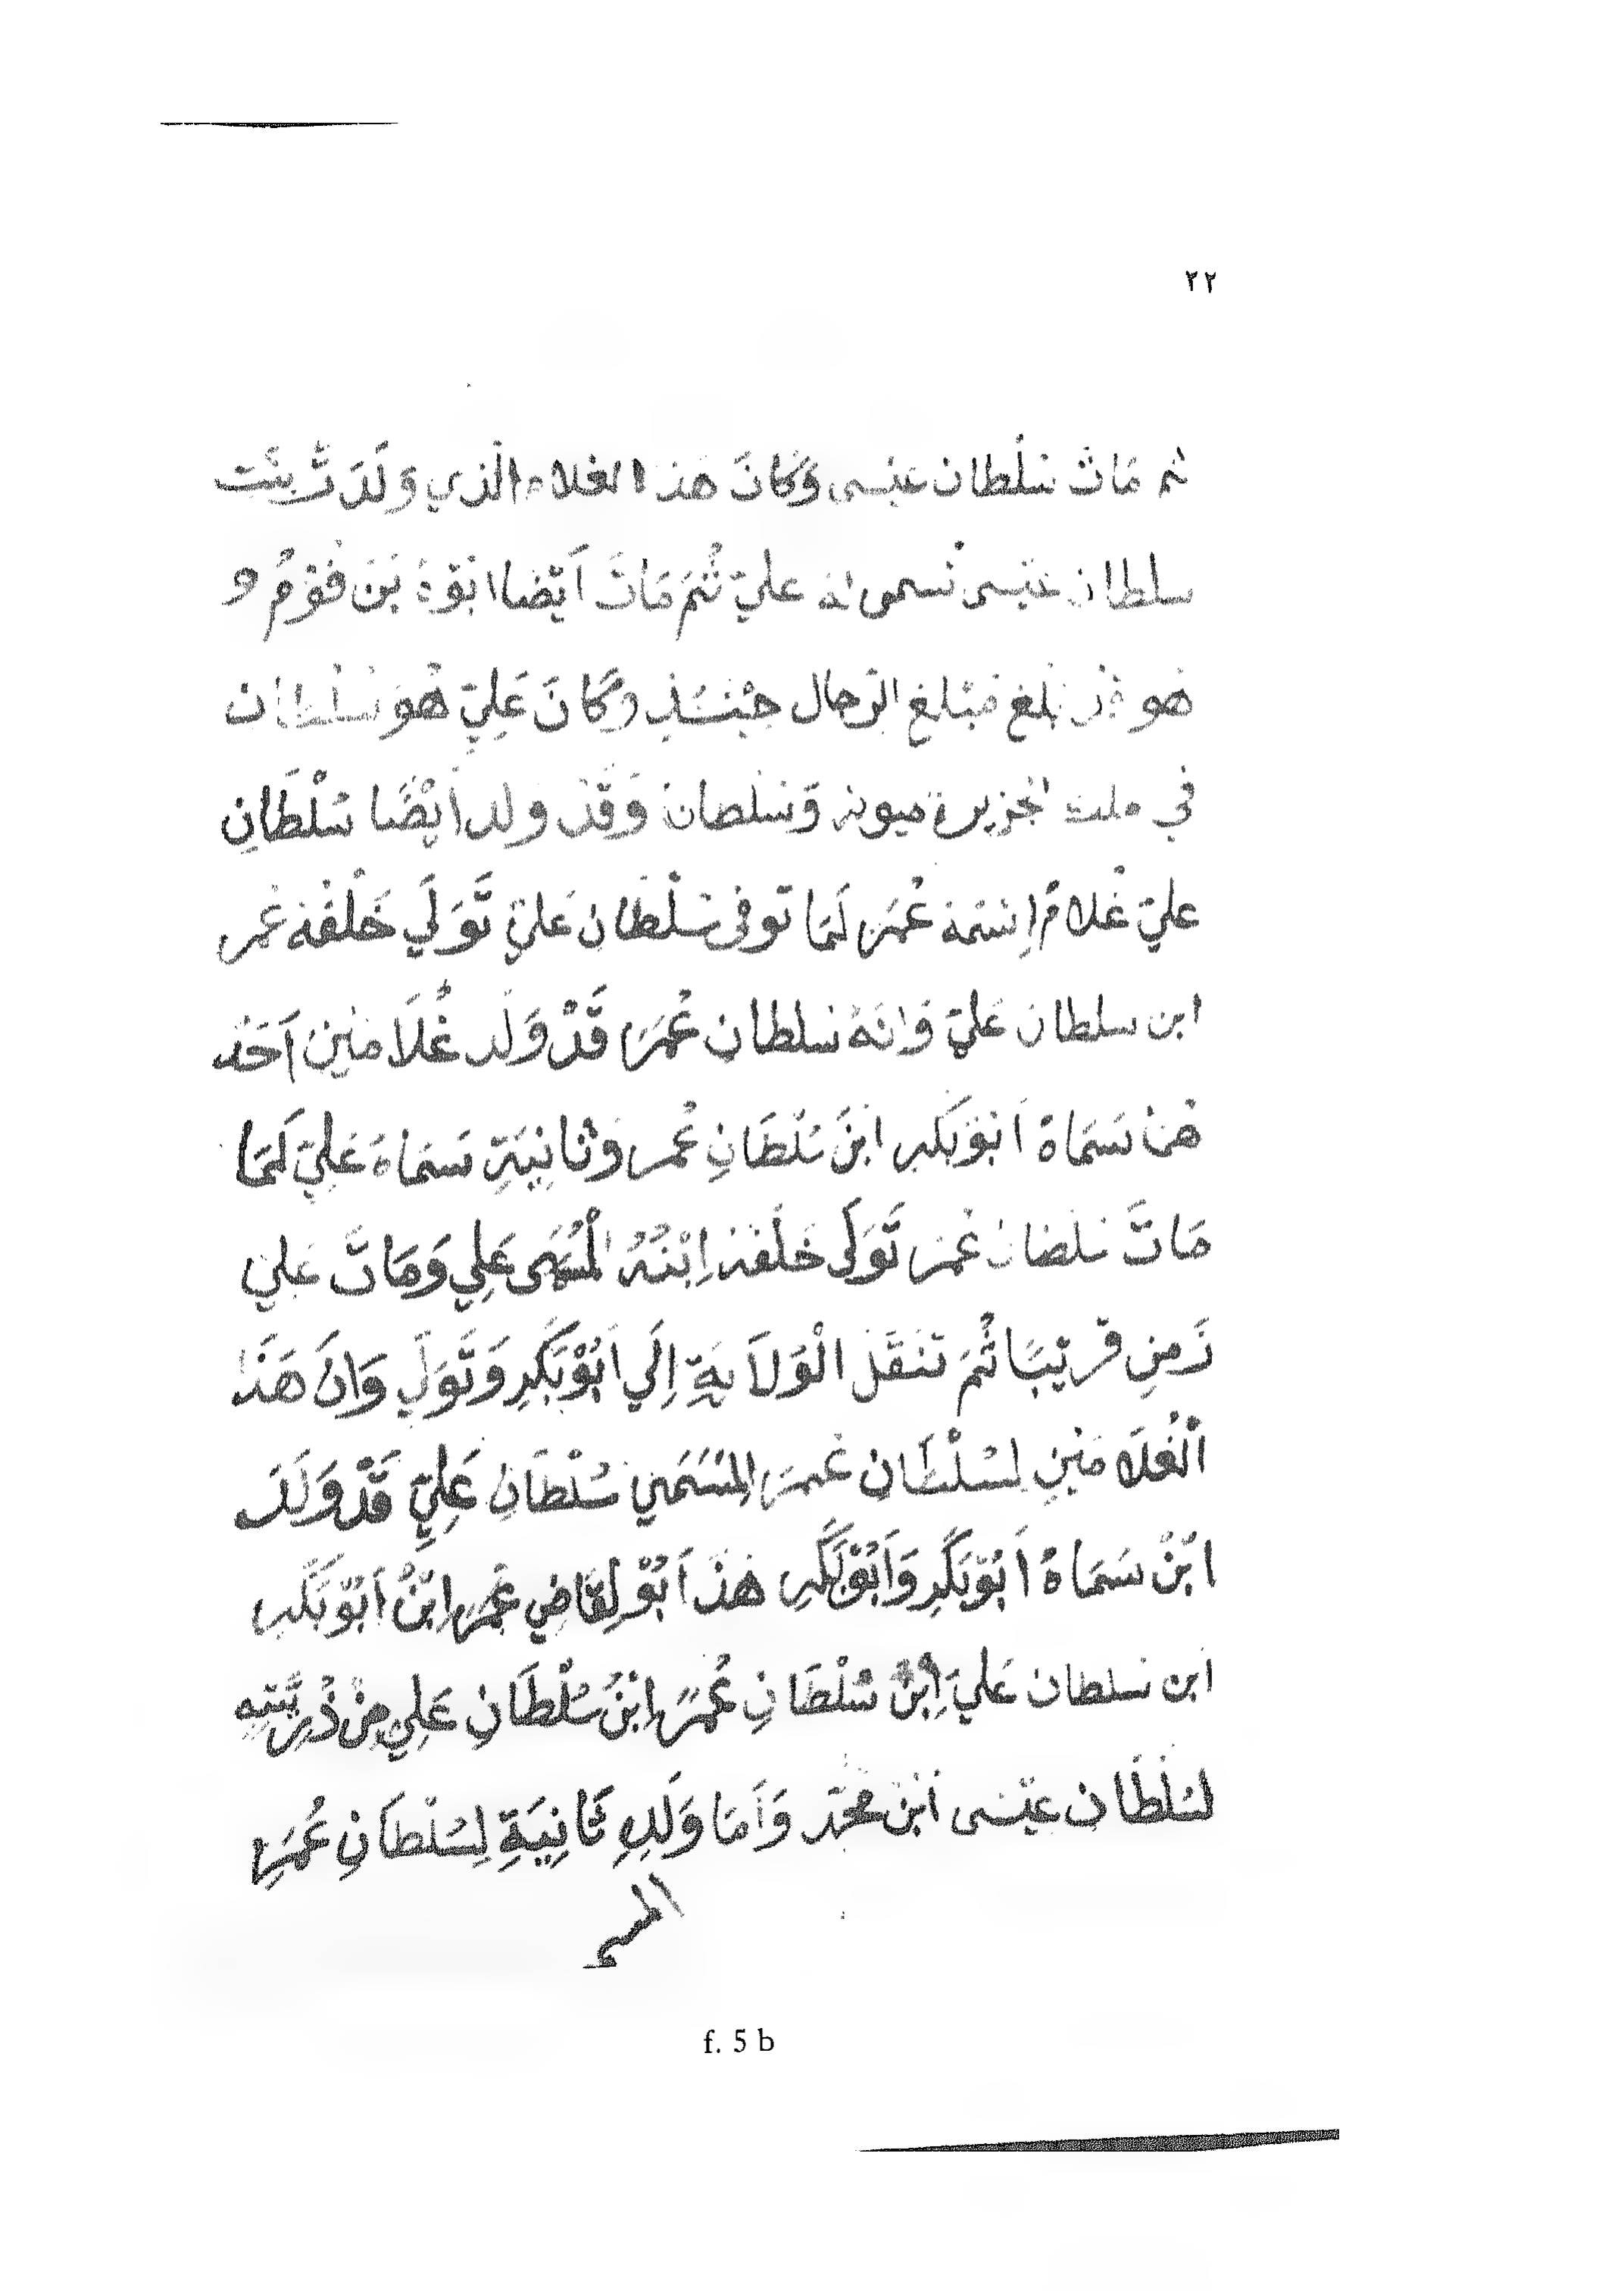 ٢٢
ثم مَاتَ سُلْطَان عِيْسى وَكَانَ هَذ ا الغلام الَّذي وَلَدَتْ بِنْت
سلطان عيسى تسمى له عليّ ثُمَ مَاتَ أَيْضا ابَوْهُ بَنَ فُوْمُ و
هو قد بلغ مَبْلغ الرّجال حِيْنَئِذِ وَكَانَ عَلِيّ هُوَ سُلْطَان
في ملك الجزيرة ميوته وَسُلطان وَقَدْ ولد أَيْضًا سُلْطَانِ
عليّ غُلامٌ إسْمَهُ عُمَرَ لَمَا تَوفى سُلْطَانِ عَليّ تَوَلَي خَلْفَهُ عُمر
ابن سلطان عَليّ وَانَهُ سلطانِ عُمَرَ قَدْ وَلَد غُلَامَيْنِ اَحَدُ
هُنَ سَمَاهُ اَبُوْبَكَرِ ابْنَ سُلْطَانِ عُمر وَثَانِيَةِ سَمَاهُ عَلِيّ لَمَا
مَاتَ سُلطان عُمَر تَوَلَى خَلْفَهُ اِبْنُهُ الْمُسَمَى عَلِي وَمَاتَ عَلِي
زَمِنِ قَرِيْبًا ثُمَ تَنَقَلَ الْوَلاَيَةِ اِلَي اَبُوْبَكَرِ وَتَوَلَي وَانَ هَذَا
الْغُلاَمَيْنِ لسُلْطَان عُمَرَ المُسَمَي سُلْطَانِ عَلِيِّ قَدْ وَلَدَ
ابْنُ سَمَاهُ اَبُوْبَكَرِ وَاَبُوْبَكَرِ هَذَ اَبُوْ لِقَاضِي عُمَرِ ابْنُ اَبُوْبَكَرِ
ابن سلطان عَليّ اِبْنُ سُلْطَانِ عُمَرَ اِبْنُ سُلْطَانِ عَلِي مِنْ ذُرِيَّتِهِ
لسُلْطَان عيْسى ابْن مُحَمّد وَاَمَا وَلَدِ ثَانِيَةِ لِسُلْطَانِ عُمَرِ
المسمى
f. 5 b